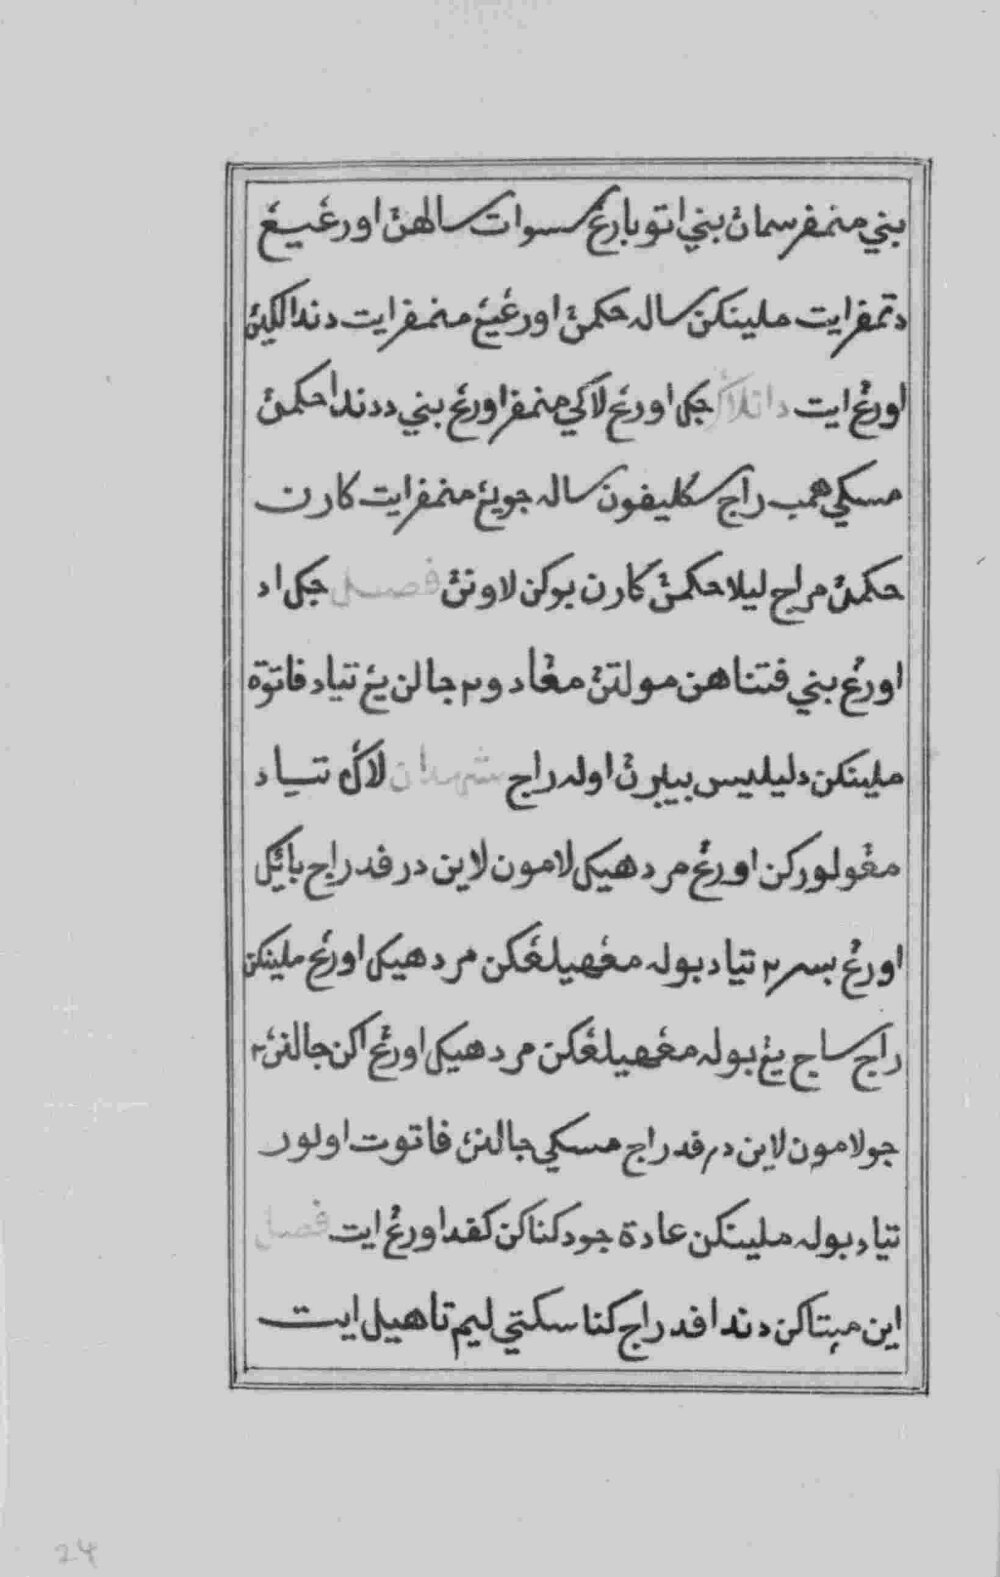 بني منمڤر سمان بني اتو بارڠ سسوات سالهن اورڠ يڠ
دتمڤر ايت ملينكن ساله حكمن اورڠ يڠ منمڤر ايت دندا لاكين
اورڠ ايت داتلاكن جك اورڠ لاكي منمڤر اورڠ بني ددندا حكمن
مسكي همب راج سكليڤون ساله جو يڠ منمڤر ايت كارن
حكمن مراج ليلا حكمن كارن بوكن لاونن فصل جك اد
اورڠ بني فتناهن مولتن مڠاد و٢ جالن يڠ تياد ڤاتوة
ملينكن دليليس بيبرن اوله راج شهدان لاڬ تياد
مڠولوركن اورڠ مردهيك لامون لاين درڤد راج بائيك
اورڠ بسر٢ تياد بوله مڠهيلڠكن مردهيك اورڠ ملينكن
راج ساج يڠ بوله مڠهيلڠكن مردهيك اورڠ اكن جالنن٢
جو لامون لاين درڤد راج مسكي جالنن ڤاتوت اولور
تياد بوله ملينكن عادة جو دكناكن كڤد اورڠ ايت فصل
اين مپتاكن دندا ڤد راج كنا سكتي ليم تاهيل ايت
24